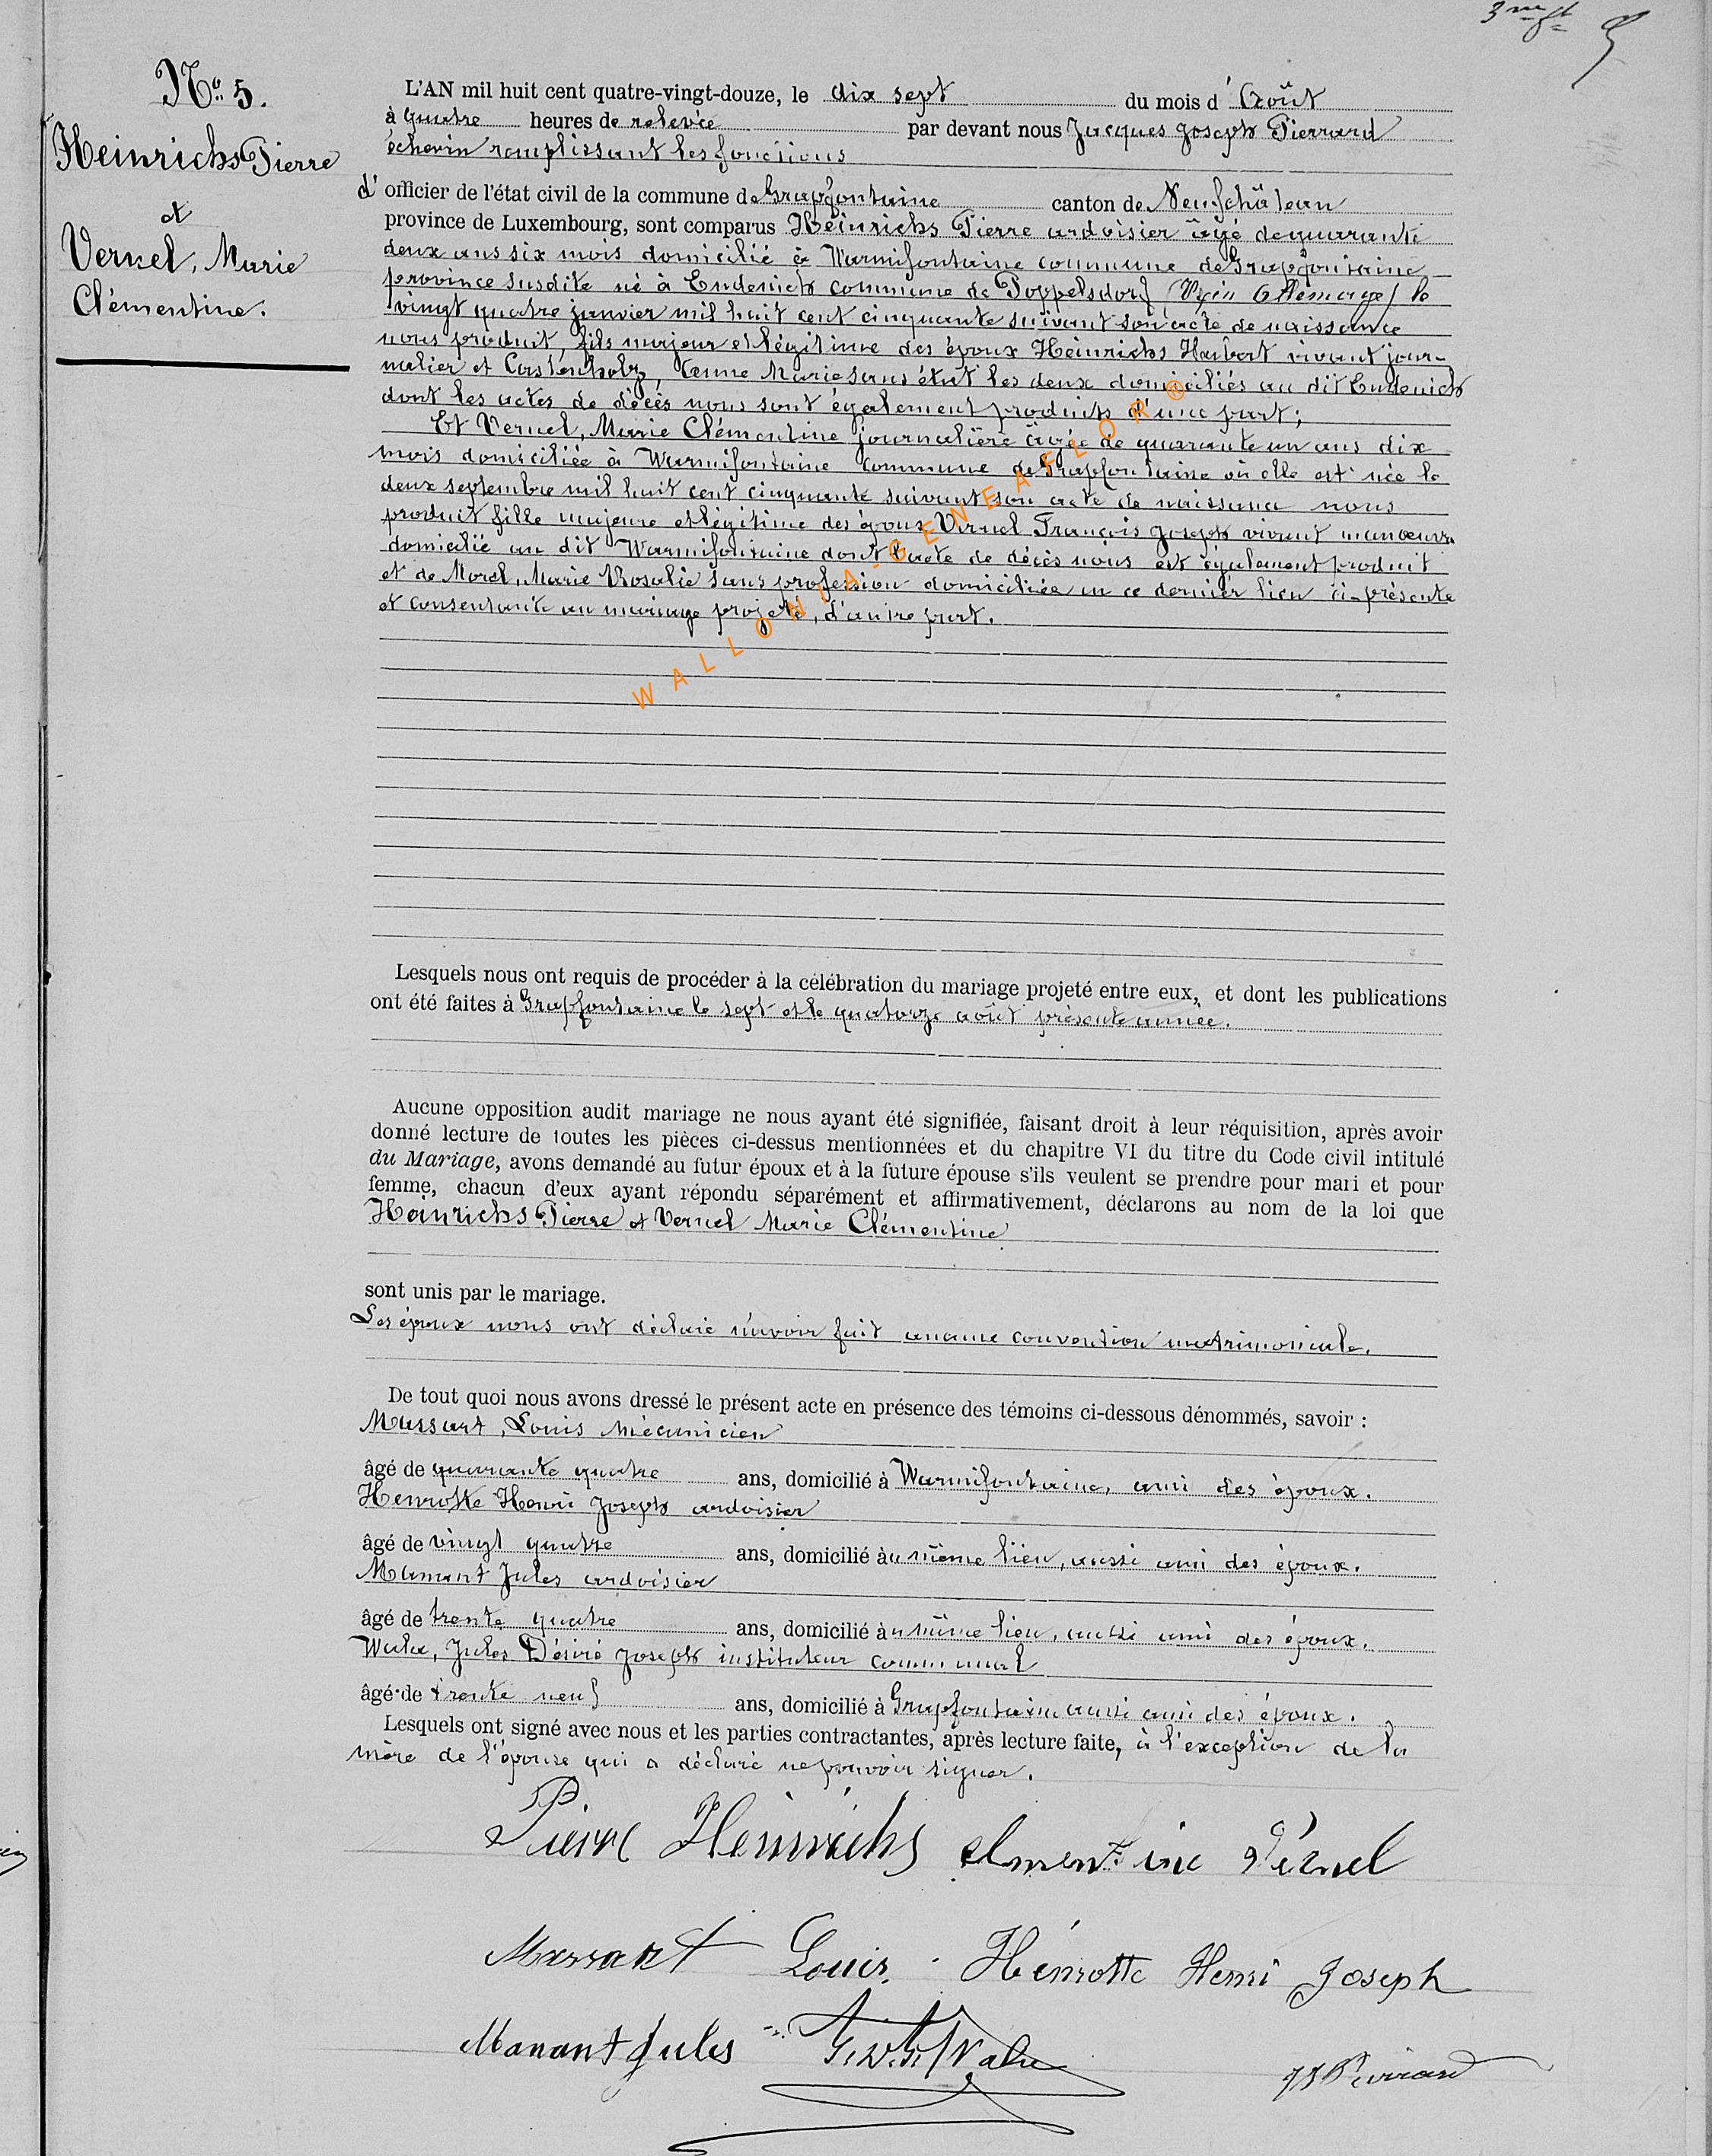 3me
Nº 5.
Heinrichs Pierre
et
Vernel, Marie
Clémentine.
L'AN mil huit cent quatre-vingt-douze, le dix sept du mois d'Août
à quatre heures de relevée par devant nous Jacques Joseph Pierrard
échevin remplissant les fonctions
d'officier de l'état civil de la commune de Grapfontaine canton de Neufchâteau
province de Luxembourg, sont comparus Heinrichs Pierre ardoisier âgé de quarante
deux ans six mois domicilié à Warmifontaine commune de Grapfontaine
province susdite né à Endenich commune de Poppelsdorf Allemagne) le
vingt quatre janvier mil huit cent cinquante suivant son acte de naissance
nous produit, fils majeur et légitime des époux Heinrichs Herbert vivant jour-
nalier et Castenholz, Marie sans état les deux domiciliés au dit Endenich
dont les actes de décès nous sont également produits d'une part;
Et Vernel, Marie Clémentine journalière âgée de quarante un ans dix
mois domiciliée à Warmifontaine commune de Grapfontaine où elle est née le
deux septembre mil huit cent cinquante suivant son acte de naissance nous
produit fille majeure et légitime des époux Vernel François Joseph vivant manœuvre
domicilié au dit Warmifontaine dont l'acte de décès nous est également produit
et de Morel, Marie Rosalie sans profession domiciliée en ce dernier lieu ci-présente
et consentante au mariage projeté, d'autre part.
WALLONIA-GENEAFLOR®
Lesquels nous ont requis de procéder à la célébration du mariage projeté entre eux, et dont les publications
ont été faites à Grapfontaine le sept et le quatorze août présente année.
Aucune opposition audit mariage ne nous ayant été signifiée, faisant droit à leur réquisition, après avoir
donné lecture de toutes les pièces ci-dessus mentionnées et du chapitre VI du titre du Code civil intitulé
du Mariage, avons demandé au futur époux et à la future épouse s'ils veulent se prendre pour mari et pour
femme, chacun d'eux ayant répondu séparément et affirmativement, déclarons au nom de la loi que
Heinrichs Pierre et Vernel Marie Clémentine
sont unis par le mariage.
Les époux nous ont déclaré n'avoir fait aucune convention matrimoniale.
De tout quoi nous avons dressé le présent acte en présence des témoins ci-dessous dénommés, savoir :
Massart, Louis mécanicien
âgé de quarante quatre ans, domicilié à Warmifontaine, ami des époux.
Henrotte Henri Joseph ardoisier
âgé de vingt quatre ans, domicilié au même lieu, aussi ami des époux.
Manant Jules ardoisier
âgé de trente quatre ans, domicilié au même lieu, aussi ami des époux.
Walu, Jules Désiré Joseph instituteur communal
âgé de trente neuf ans, domicilié à Grapfontaine aussi ami des époux.
Lesquels ont signé avec nous et les parties contractantes, après lecture faite, à l'exception de la
mère de l'épouse qui a déclaré ne pouvoir signer.
Pierre Heinrichs Clmentine Vérnel
Massart Louis. Hénrotte Henri Joseph
Manant Jules Walu JJ Pierrard